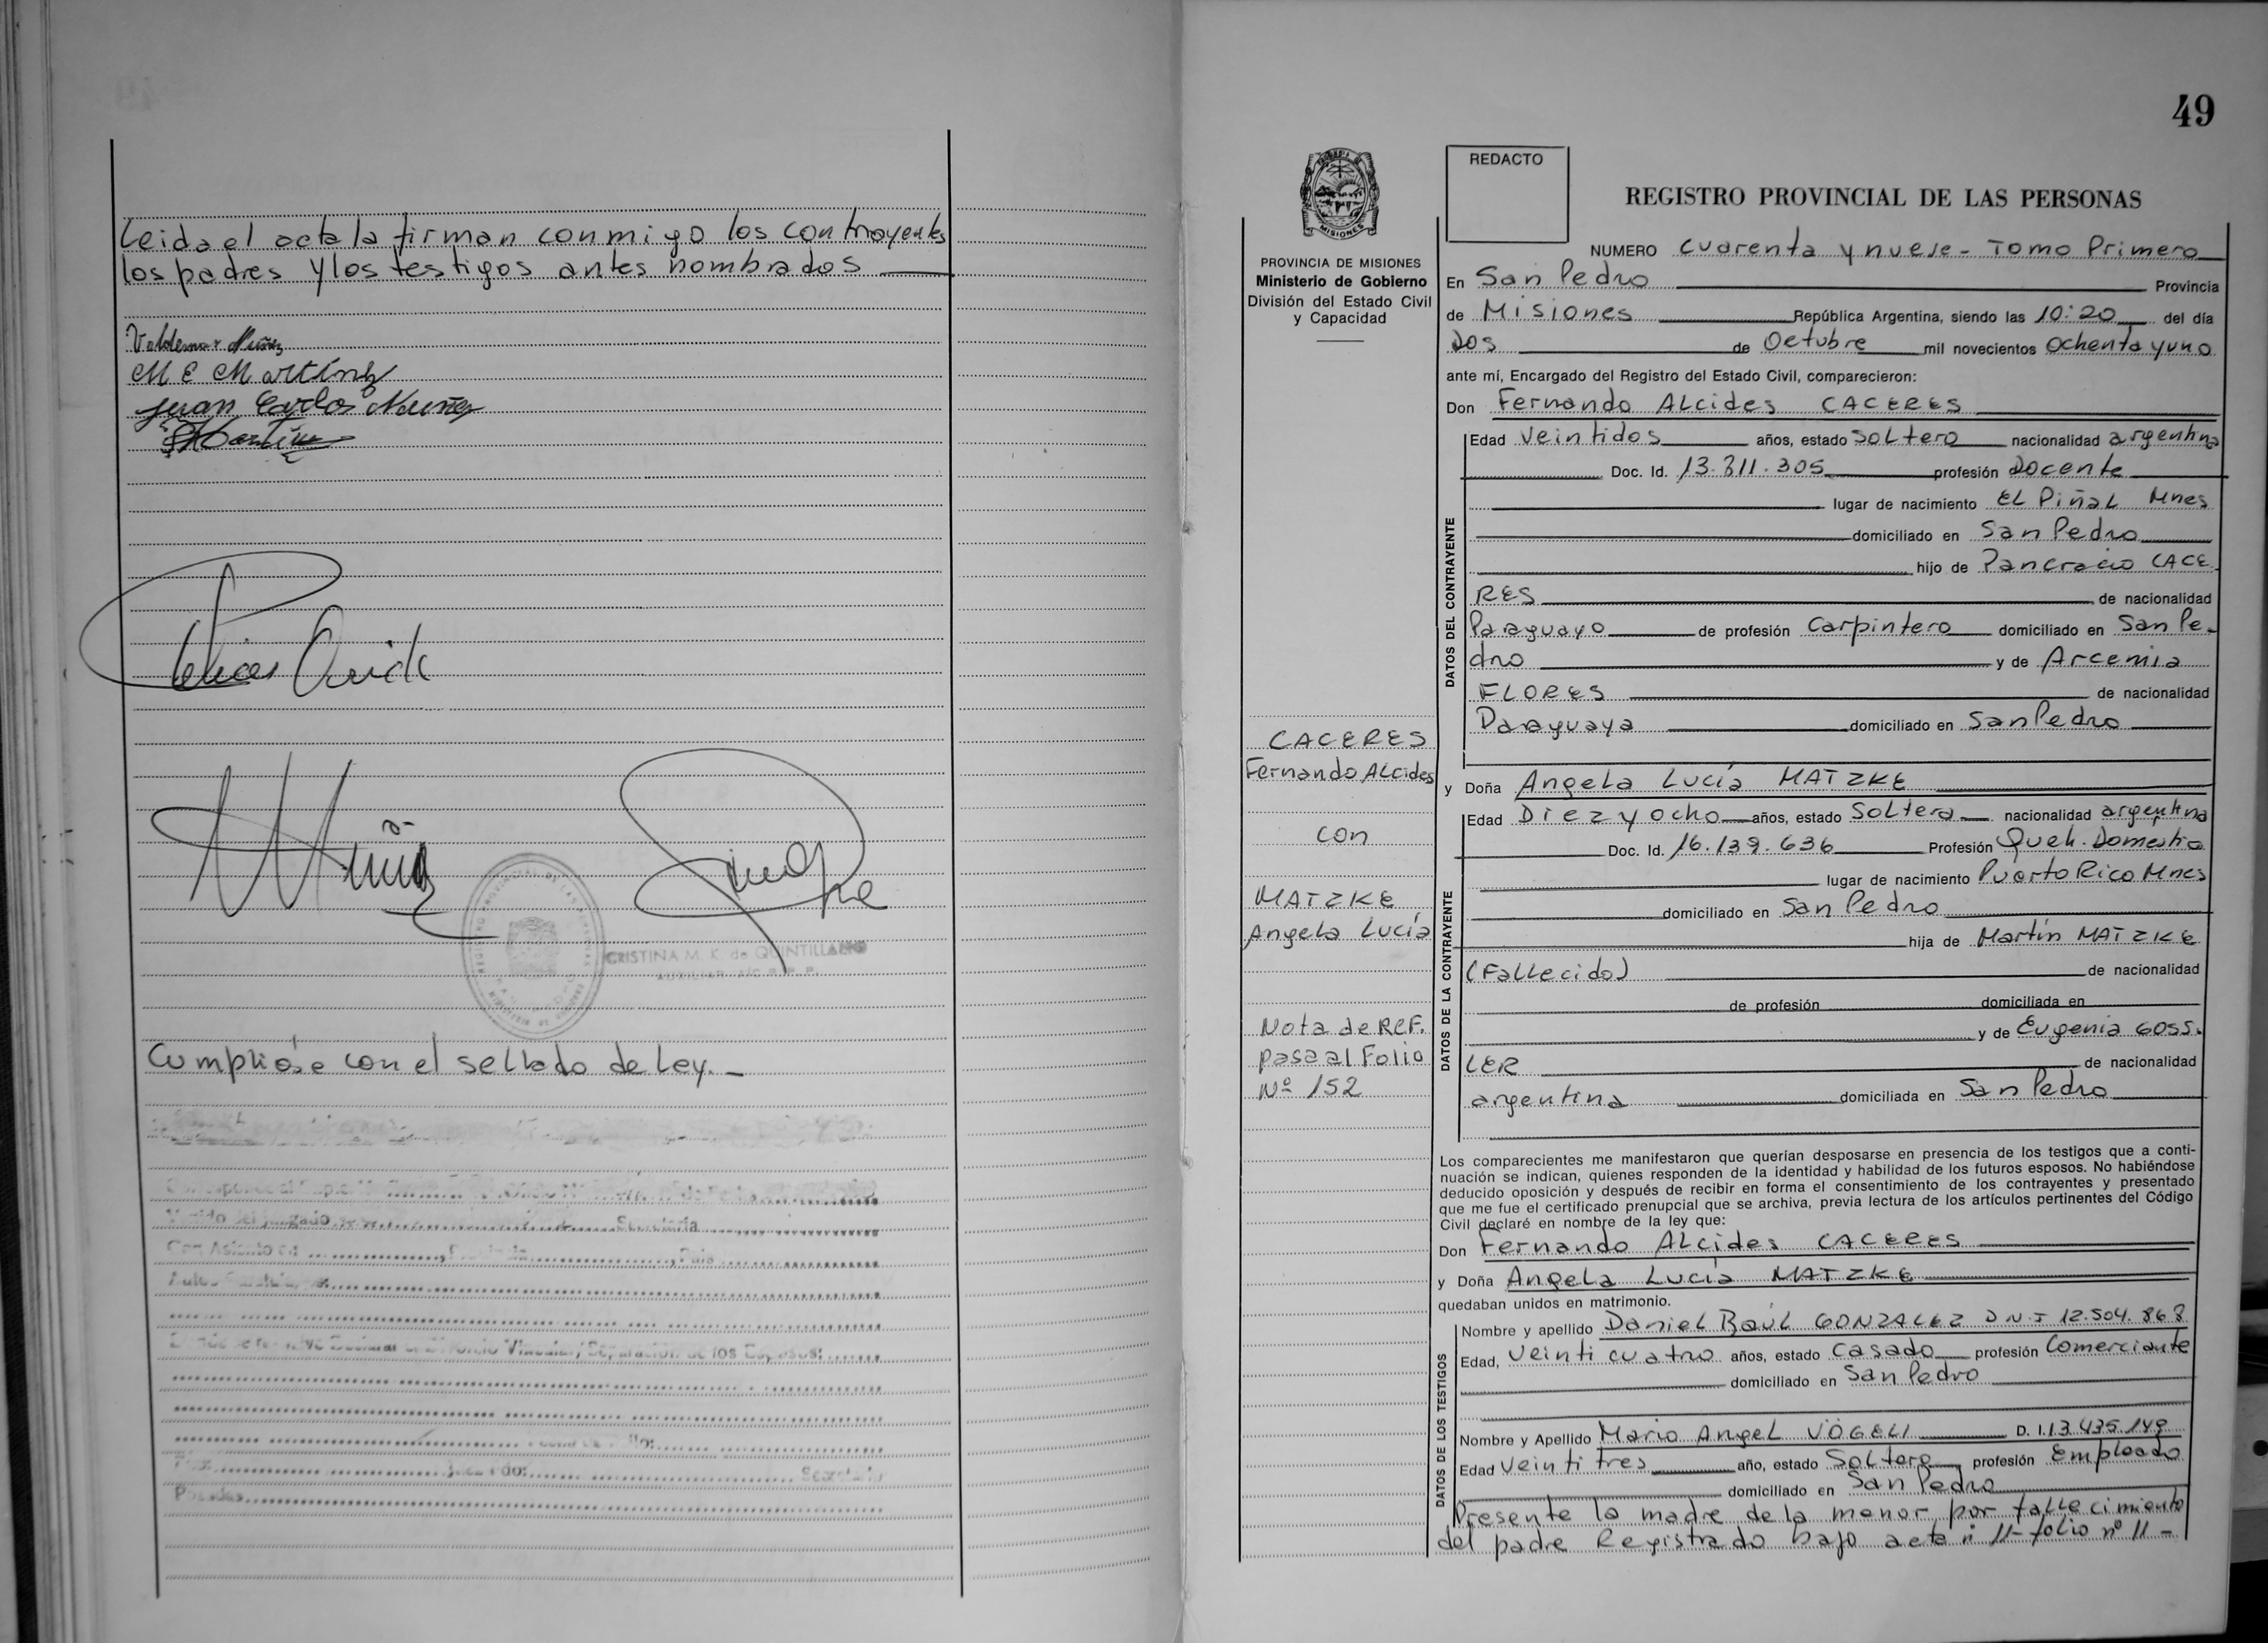 Leida el acta la firman conmigo los contrayentes
los padres y los testigos antes nombrados
Valdemar Nuñez
M E Martínez
Juan Carlos Nuñez
CRISTINA M. K. de QUINTILLANO
AUXILIAR A/C R.P.P.
Cumplióse con el sellado de Ley. -
Secretaría
Con Asiento en
Posadas
49
REDACTO
REGISTRO PROVINCIAL DE LAS PERSONAS
MISIONES
PROVINCIA DE MISIONES
Ministerio de Gobierno
División del Estado Civil
y Capacidad
NUMERO Cuarenta y nueve - Tomo Primero
En San Pedro Provincia
de Misiones República Argentina, siendo las 10:20 del día
Dos de Octubre mil novecientos Ochenta y uno
ante mí, Encargado del Registro del Estado Civil, comparecieron:
Don Fernando ALcides CACERES
DATOS DEL CONTRAYENTE
Edad Veintidos años, estado SoLtero nacionalidad argentina
Doc. Id. 13.311.305 profesión Docente
lugar de nacimiento EL PiñaL Mnes
domiciliado en San Pedro
hijo de Pancracio CACE
RES de nacionalidad
Paraguayo de profesión Carpintero domiciliado en San Pe-
dro y de Arcemia
FLORES de nacionalidad
Paraguaya domiciliado en San Pedro
CACERES
Fernando ALcides
con
MATZKE
Angela Lucía
Nota de REF.
pasa al Folio
Nº 152
y Doña Angela Lucía MATZKE
DATOS DE LA CONTRAYENTE
Edad Diez y ocho años, estado Soltera nacionalidad argentina
Doc. Id. 16.139.636 Profesión Queh. Domestico
lugar de nacimiento Puerto Rico Mnes
domiciliado en San Pedro
hija de Martín MATZKE
(Fallecido) de nacionalidad
de profesión domiciliada en
y de Eugenia GOSS-
LER de nacionalidad
argentina domiciliada en San Pedro
Los comparecientes me manifestaron que querían desposarse en presencia de los testigos que a conti-
nuación se indican, quienes responden de la identidad y habilidad de los futuros esposos. No habiéndose
deducido oposición y después de recibir en forma el consentimiento de los contrayentes y presentado
que me fue el certificado prenupcial que se archiva, previa lectura de los artículos pertinentes del Código
Civil declaré en nombre de la ley que:
Don Fernando ALcides CACERES
y Doña Angela Lucía MATZKE
quedaban unidos en matrimonio.
DATOS DE LOS TESTIGOS
Nombre y apellido Daniel Raúl GONZALEZ D N I 12.504.868
Edad, Veinti cuatro años, estado Casado profesión Comerciante
domiciliado en San Pedro
Nombre y Apellido Mario Angel VÖGELI D. I. 13.435.149
Edad Veinti tres año, estado Soltero profesión Empleado
domiciliado en San Pedro
Presente la madre de la menor, por fallecimiento
del padre Registrado bajo acta n 11- folio nº 11 -